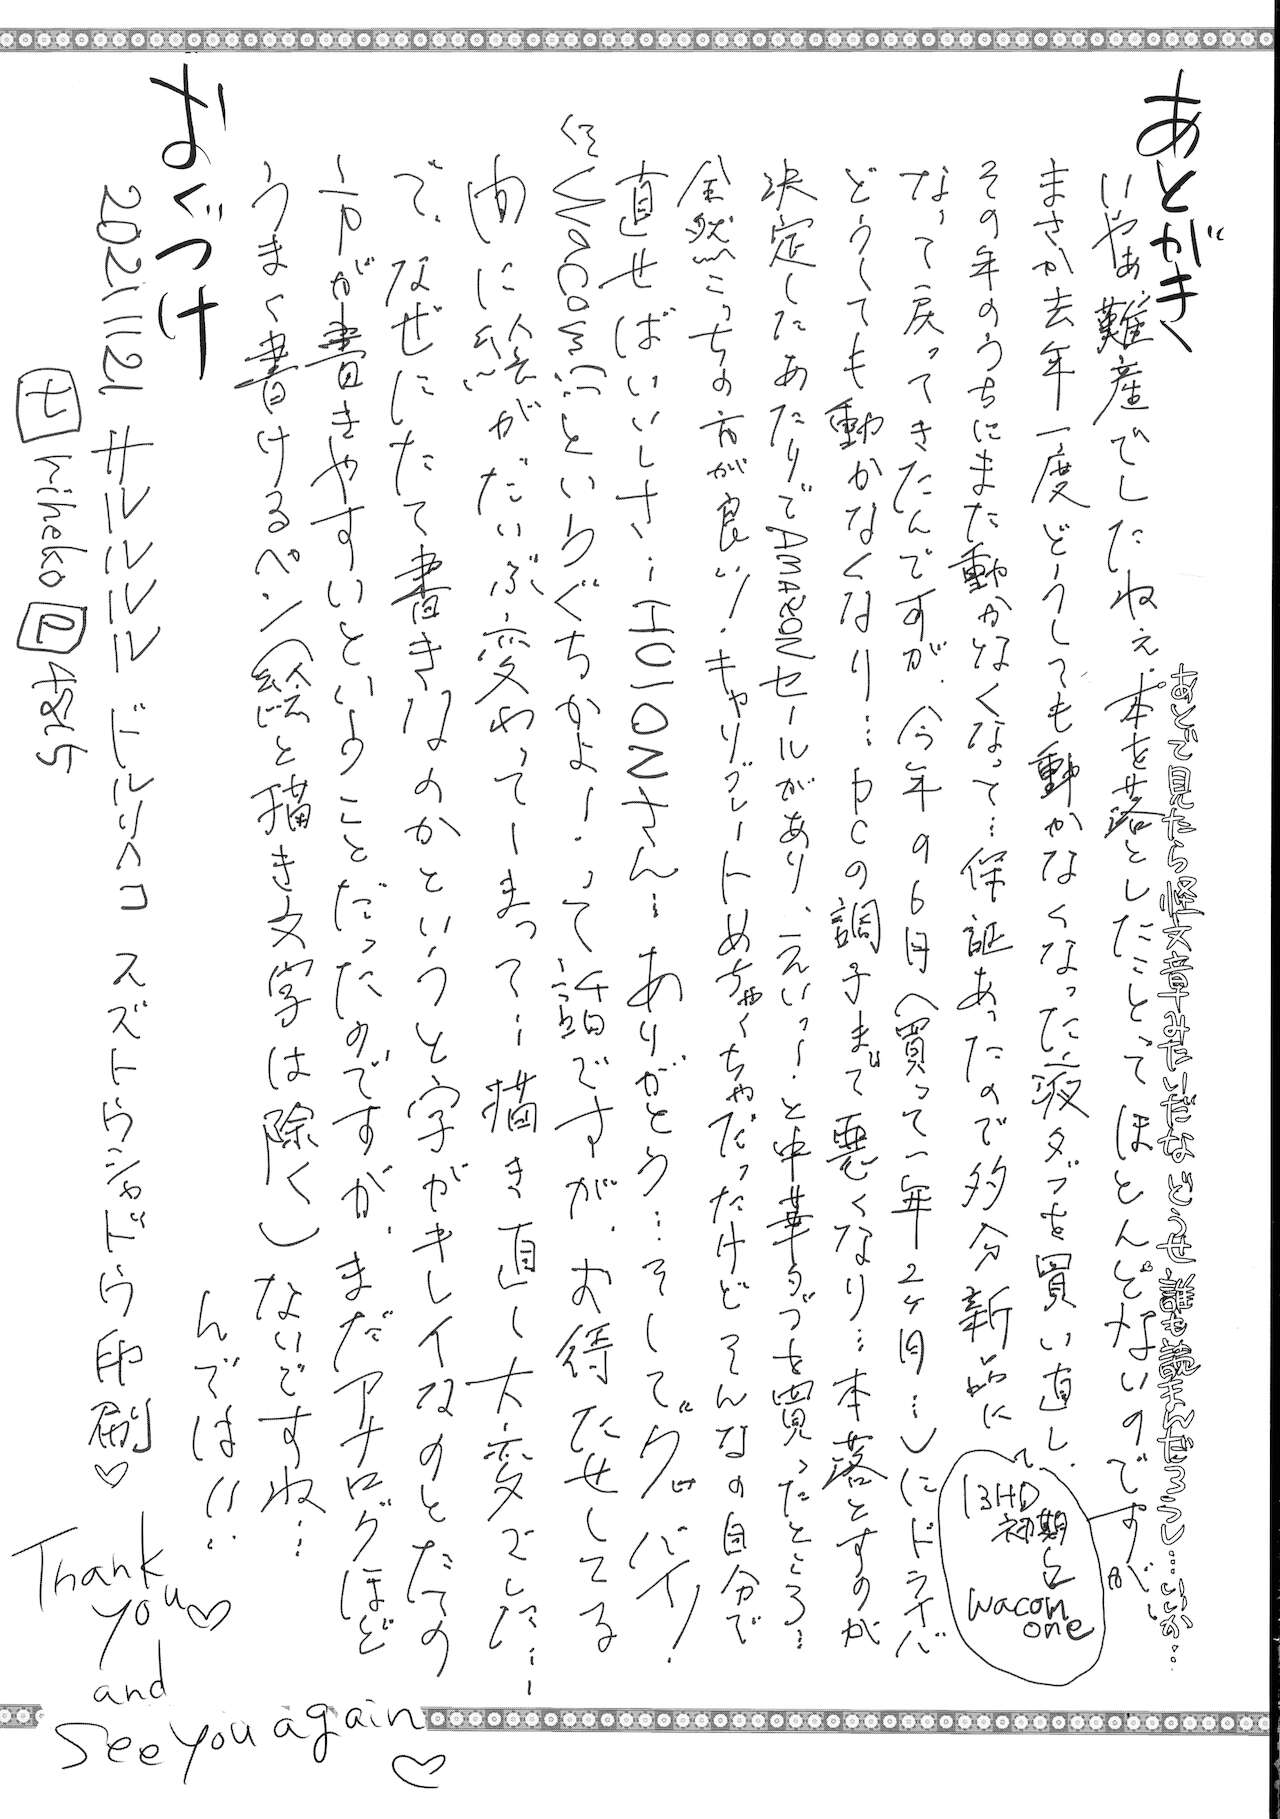 あとがき
あとで見たら怪文章みたいだな どうせ誰も読まんだろうし…いいか…
いやぁ、難産でしたねぇ。本を落としたことってほとんどないのですが…
まさか去年一度どうしても動かなくなった液タブを買い直し、
13HD
初期と
wacom
one
その年のうちにまた動かなくなって…保証あったので多分新品に
なって戻ってきたんですが、今年の6月(買って一年2ヶ月…)にドライバ
どうしても動かなくなり…PCの調子まで悪くなり…本落とすのが
決定したあたりでAMAZONセールがあり、えいっ!と中華タブを買ったところ…
全然こっちの方が良い!キャリブレートめちゃくちゃだったけどそんなの自分で
直せばいいしさ…HUIONさん…ありがとう…そしてグッバイ!
Wacom!!というぐちかよ!って話ですが、お待たせしてる
くそ
内に絵がだいぶ変わってしまって…描き直し大変でした…
で、なぜにたて書きなのかというと字がキレイなのとたての
方が書きやすいということだったのですが、まだアナログほど
うまく書けるペン(絵と描き文字は除く)ないですね…
んでは!!
おくづけ
20211121 サルルルル ドルリヘコ スズトウシャドウ印刷♡
riheko 48rb
Thank
you♡
and
See you again
♡